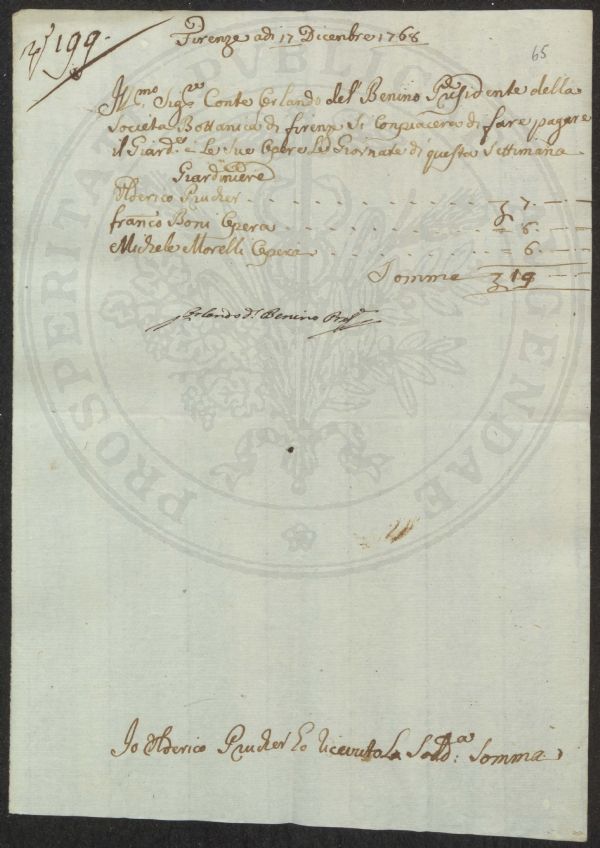 N.° 199.
Firenze adì 17 Dicenbre 1768
65
Ill.mo Sig.re Conte Orlando del Benino Presidente della
Societa Bottanica di firenze Si Conpiacera di fare pagare
il Giard.re e Le Sue Opere Le Giornate di questa Settimana
Giardiniere
Ulderico Prucher . . . . . . . . 7. —
franco Boni Opera . . . . . . . . — 6. —
Michele Morelli Opera . . . . . . . — 6. —
Somma 19 — —
Orlando D. Benino Pres.te
Io Ulderico Prucher ho ricevuto La Sodd.a Somma
PROSPERITATI PUBLICAE AUGENDAE